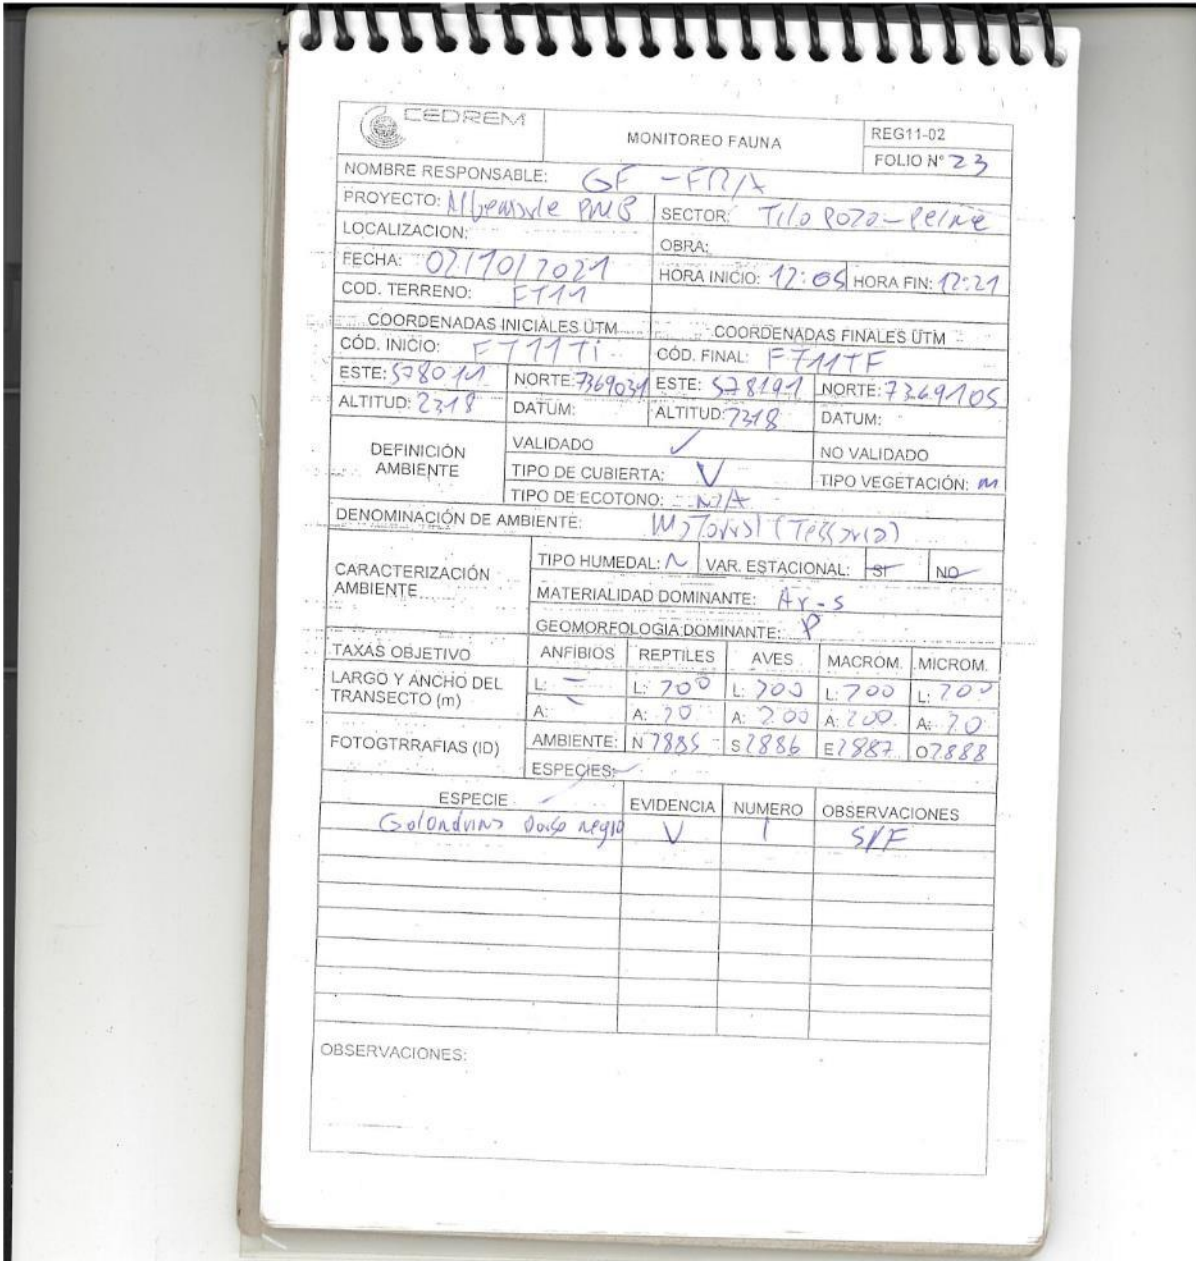 CEDREM
MONITOREO FAUNA
REG11-02
FOLIO N° 23
NOMBRE RESPONSABLE: GF - FR/A
PROYECTO: Albemarle PMB SECTOR: Tilo Pozo - Peine
LOCALIZACION: OBRA:
FECHA: 02/10/2021 HORA INICIO: 12:05 HORA FIN: 12:21
COD. TERRENO: FT11
COORDENADAS INICIALES UTM COORDENADAS FINALES UTM
CÓD. INICIO: FT11Ti CÓD. FINAL: FT11TF
ESTE: 578011 NORTE: 7369031 ESTE: 578191 NORTE: 7369105
ALTITUD: 2318 DATUM: ALTITUD: 2318 DATUM:
DEFINICIÓN AMBIENTE
VALIDADO ✓ NO VALIDADO
TIPO DE CUBIERTA: V TIPO VEGETACIÓN: M
TIPO DE ECOTONO: N/A
DENOMINACIÓN DE AMBIENTE: Matorral (Tessaria)
CARACTERIZACIÓN AMBIENTE
TIPO HUMEDAL: N VAR. ESTACIONAL: SI NO
MATERIALIDAD DOMINANTE: Ar-s
GEOMORFOLOGIA DOMINANTE: P
TAXAS OBJETIVO ANFIBIOS REPTILES AVES MACROM. MICROM.
LARGO Y ANCHO DEL TRANSECTO (m)
L: - L: 200 L: 200 L: 200 L: 200
A: - A: 20 A: 200 A: 200 A: 20
FOTOGTRRAFIAS (ID) AMBIENTE: N 2885 S 2886 E 2887 O 2888
ESPECIES:
ESPECIE EVIDENCIA NUMERO OBSERVACIONES
Golondrina dorso negro V 1 S/F
OBSERVACIONES: